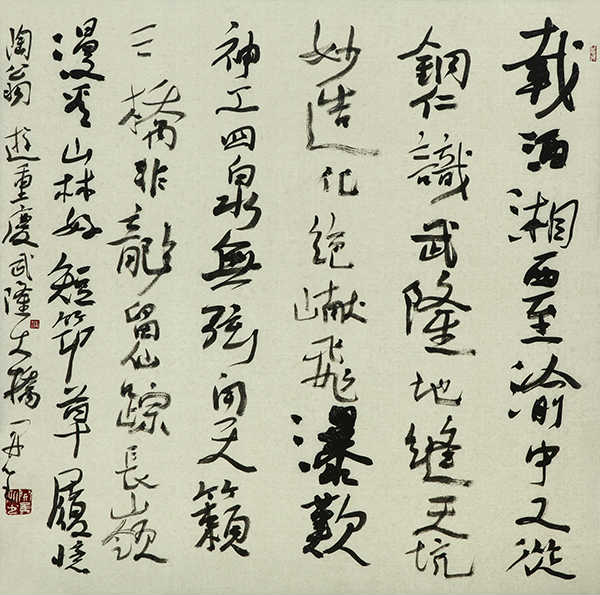 載酒湘西至渝中又從
銅仁識武隆地縫天坑
妙造化絕巘飛瀑歎
神工四泉無弦問天籟
三橋非龍留仙踪長嶺
漫山林好短筇草履憶
陶翁 遊重慶武隆天橋